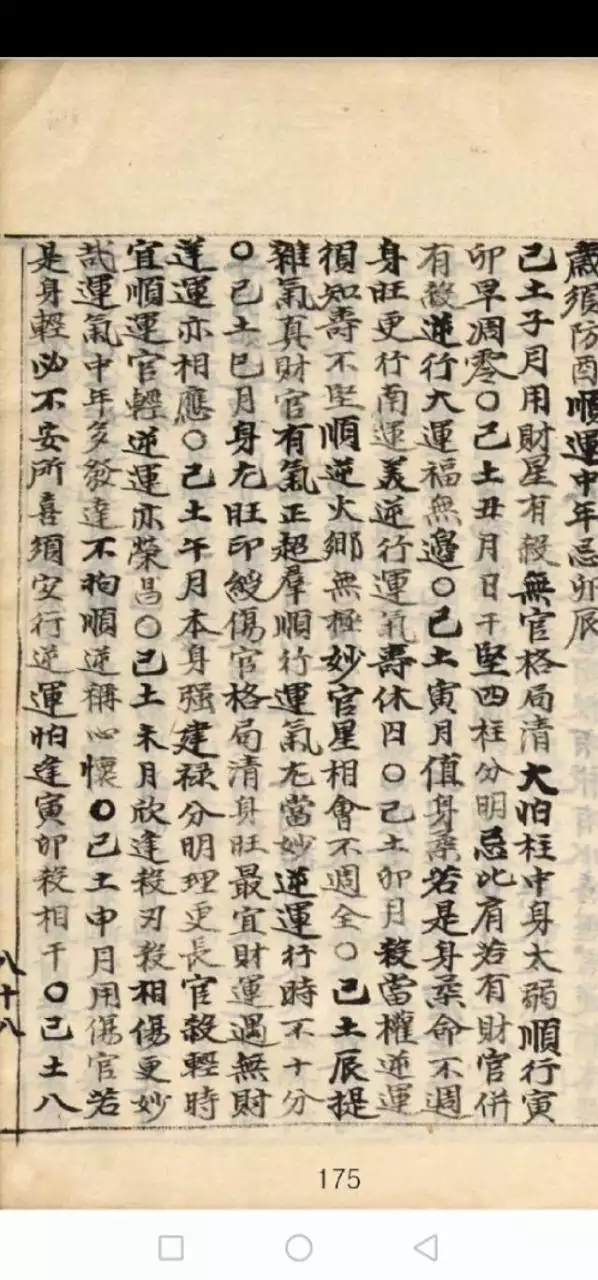 歳須防酉順運中年忌卯辰
己土子月用財星有殺無官格局清大怕柱中身太弱順行寅
卯早凋零〇己土丑月日干堅四柱分明忌比肩若有財官併
有殺逆行大運福無邉〇己土寅月值身柔若是身柔命不週
身旺更行南運美逆行運氣壽休囚〇己土卯月殺當權逆運
須知壽不堅順逆火鄉無極妙官星相會不週全〇己土辰提
雜氣真財官有氣正超羣順行運氣尤當妙逆運行時不十分
〇己土巳月身尤旺印綬傷官格局清身旺最宜財運遇無財
逆運亦相應〇己土午月本身强建禄分明理更長官殺輕時
宜順運官輕逆運亦榮昌〇己土未月欣逢殺刃殺相傷更妙
哉運氣中年多發達不拘順逆稱心懷〇己土申月用傷官若
是身輕必不安所喜須安行逆運怕逢寅卯殺相干〇己土八
八十八
175